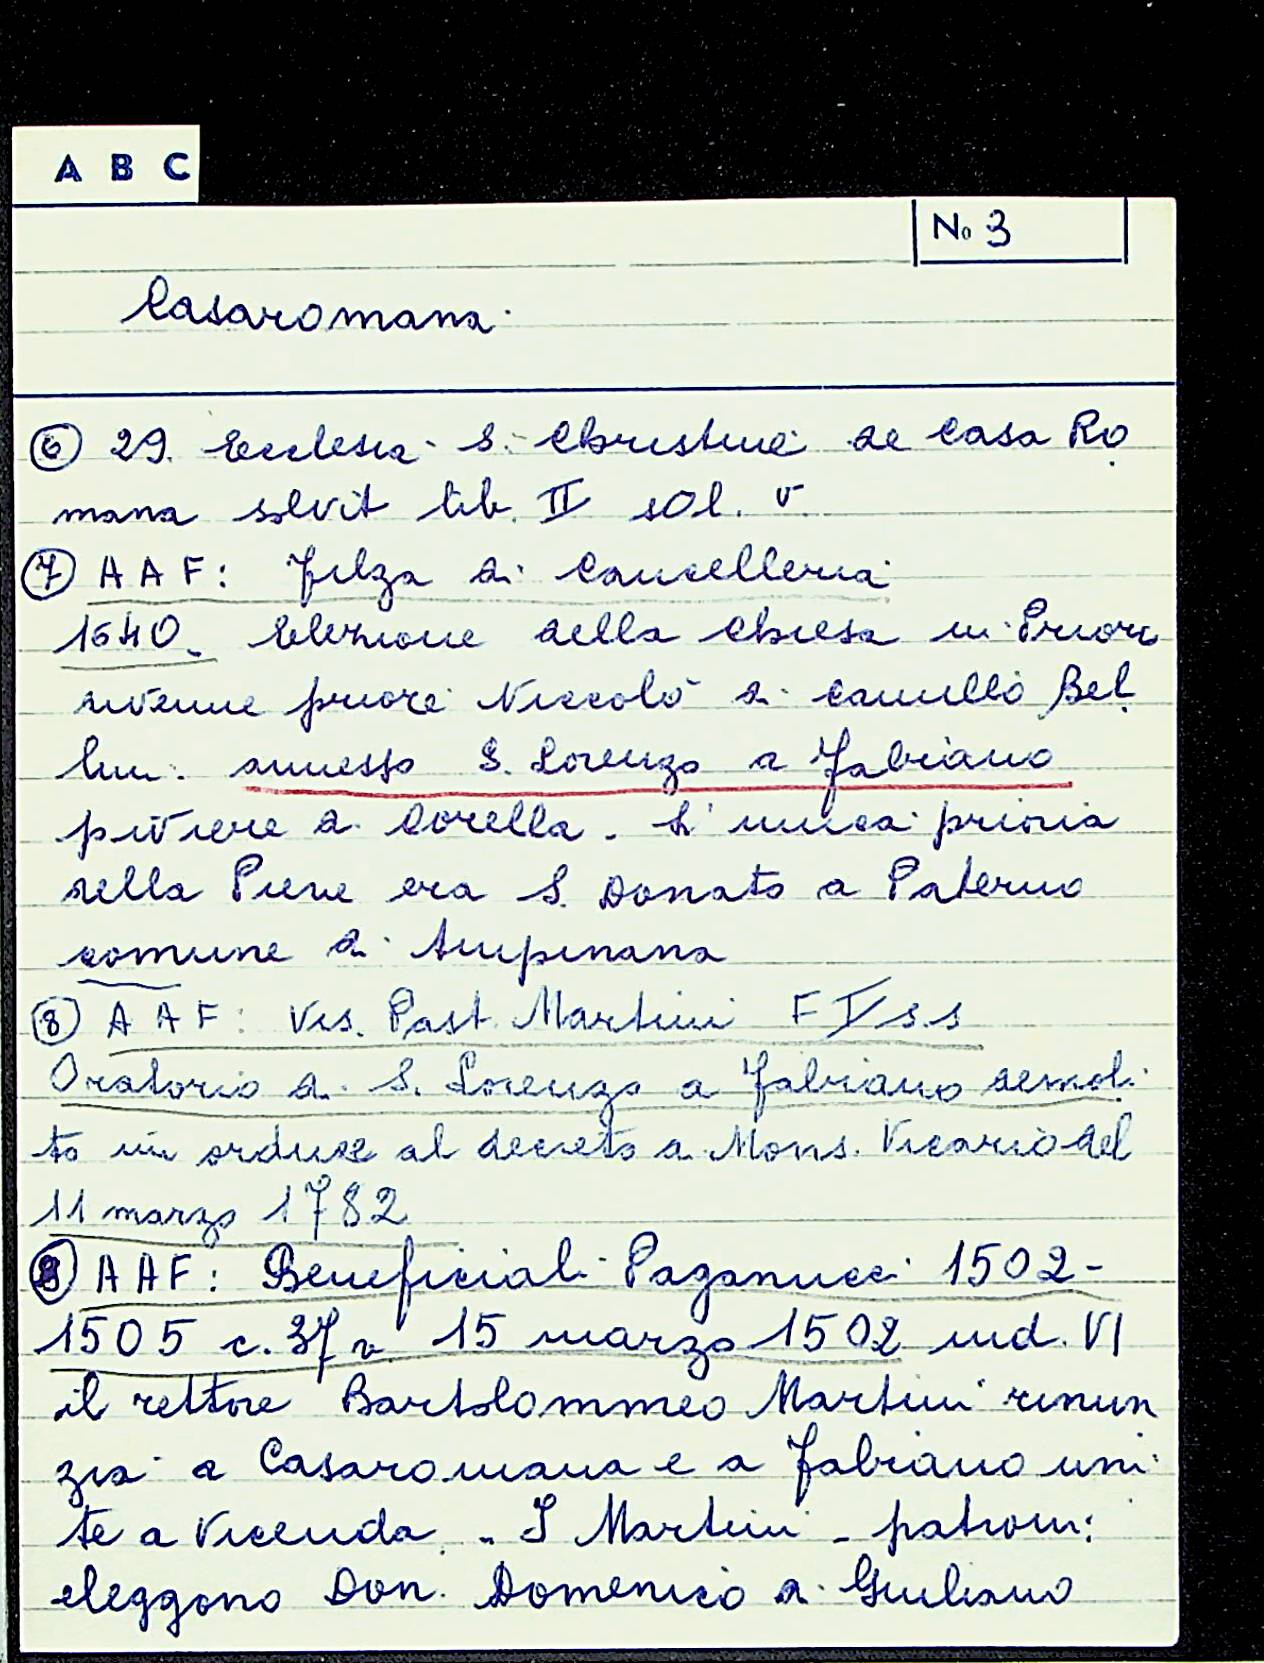 A B C
No 3
Casaromana
⑥ 29. Ecclesia S. Christine de Casa Ro
mana solvit lib. II sol. V
⑦ A A F: Filza di Cancelleria
1640. Elezione della Chiesa in Prioria
avenne priore Niccolò di Camillo Bel
lini. annesso S. Lorenzo a Fabiano
piviere di Corella. L'unica prioria
della Pieve era S. Donato a Paterno
comune di Ampinana
⑧ A A F: Vis. Past. Martini F V s s
Oratorio di S. Lorenzo a Fabiano demoli
to in ordine al decreto di Mons. Vicario del
11 marzo 1782
⑨ A A F: Beneficiali Paganucci 1502-
1505 c. 37 v 15 marzo 1502 ind. VI
il rettore Bartolommeo Martini rinun
zia a Casaromana e a Fabiano uni
te a vicenda. I Martini patroni
eleggono Don. Domenico di Giuliano